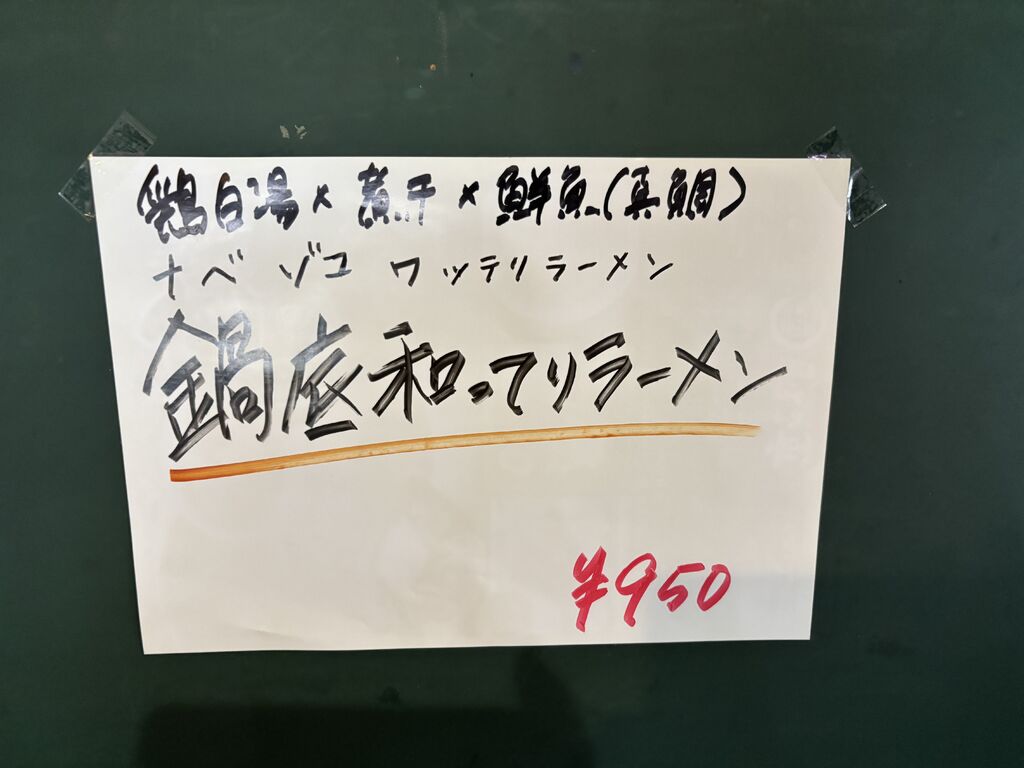 鶏白湯×煮干×鮮魚(真鯛)
ナベゾコ ワッテリラーメン
鍋底和ってりラーメン
¥950